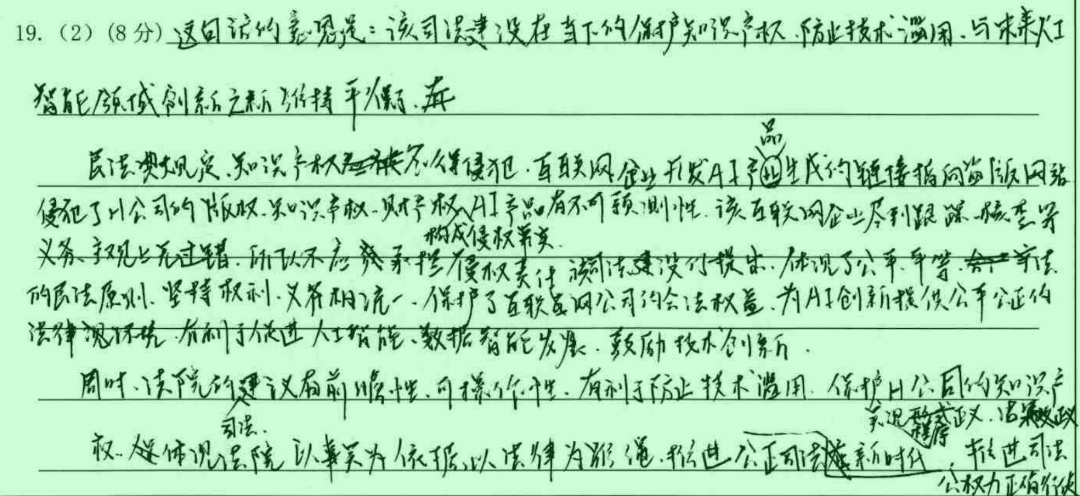 19.（2）(8分) 这句话的意思是：该司法建议在当下的保护知识产权、防止技术滥用，与未来人工
智能领域创新之新维持平衡。
民法典规定，知识产权不得侵犯，互联网企业开发AI产品生成的链接指向盗版网站
侵犯了H公司的版权、知识产权、财产权，构成侵权事实，AI产品有不可预测性，该互联网企业尽到跟踪、核查等
义务、主观上无过错，所以不应承担侵权责任，该司法建议的提出，体现了公平、平等、守法
的民法原则，坚持权利、义务相统一，保护了互联网公司的合法权益，为AI创新提供公平公正的
法律环境，有利于促进人工智能、数据智能发展，鼓励技术创新。
同时，法院的司法建议有前瞻性、可操作性，有利于防止技术滥用，保护H公司的知识产
权，体现法院以事实为依据，以法律为准绳，推进公正司法，实现程序正义，推进司法
公权力正确行使